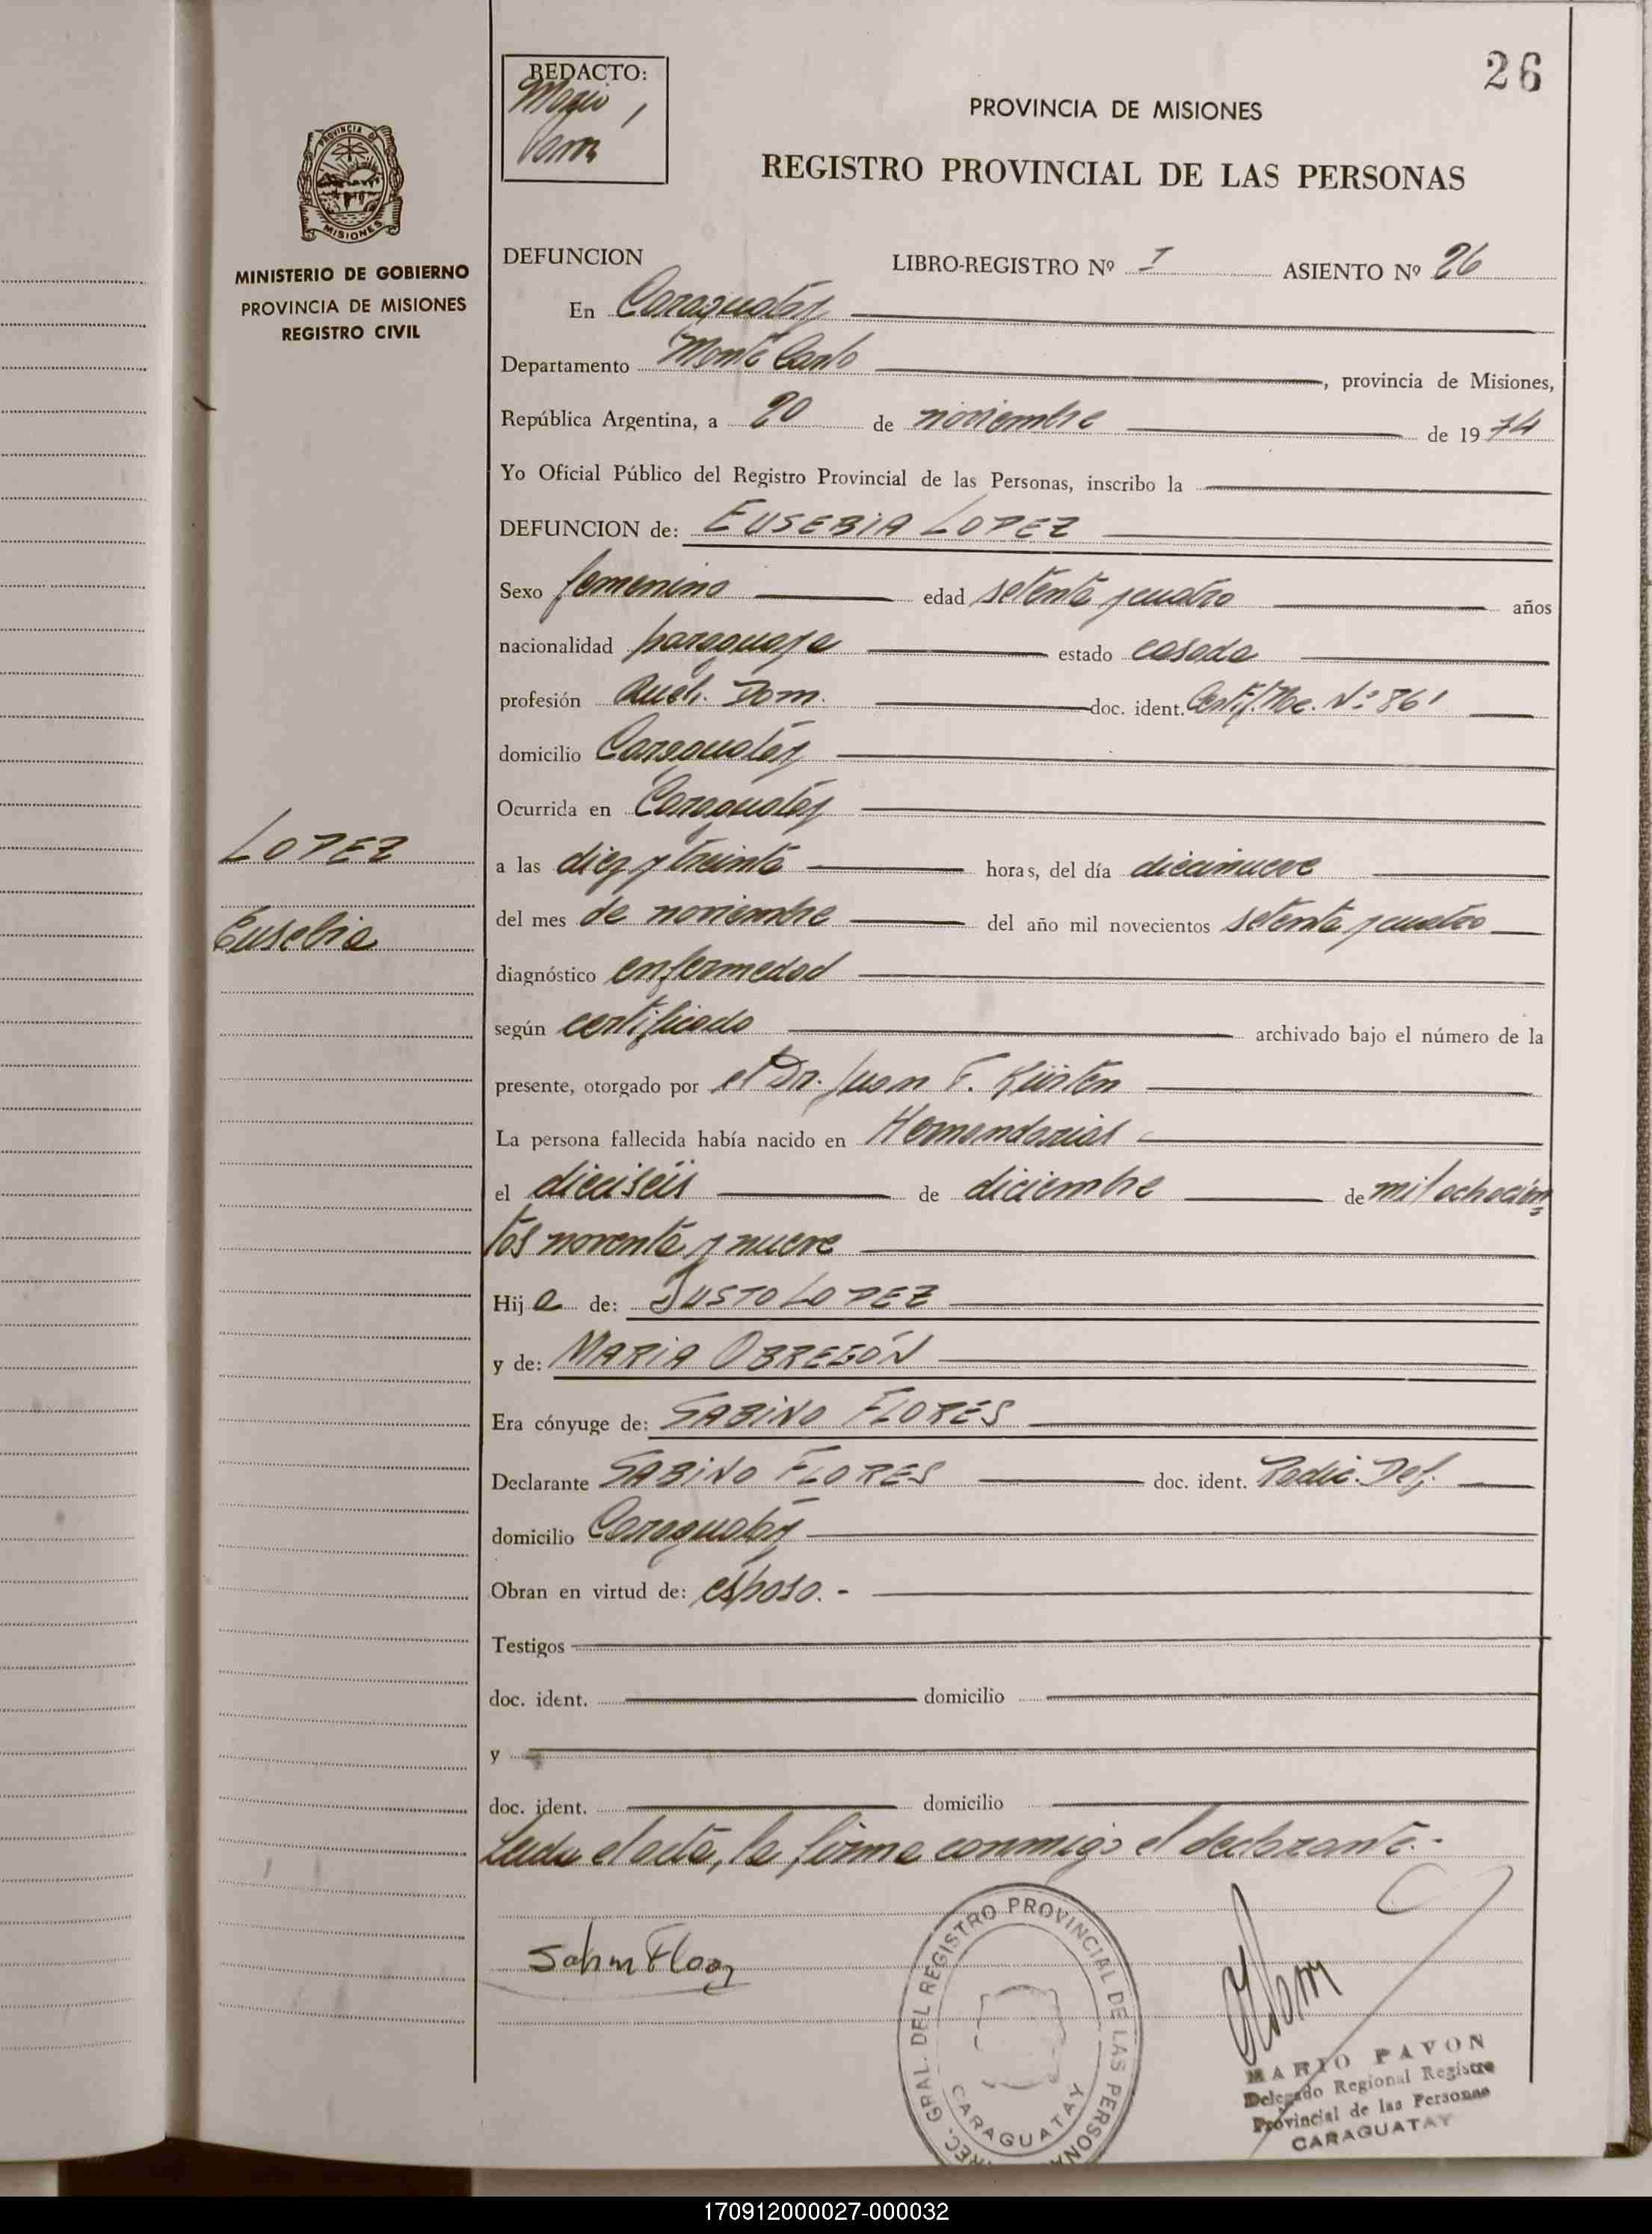 26
REDACTO:
Mario
PROVINCIA DE MISIONES
REGISTRO PROVINCIAL DE LAS PERSONAS
PROVINCIA DE
MISIONES
MINISTERIO DE GOBIERNO
PROVINCIA DE MISIONES
REGISTRO CIVIL
DEFUNCION LIBRO-REGISTRO Nº I ASIENTO Nº 26
En Caraguatay
Departamento Monte Carlo, provincia de Misiones,
República Argentina, a 20 de noviembre de 1974
Yo Oficial Público del Registro Provincial de las Personas, inscribo la
DEFUNCION de: EUSEBIA LOPEZ
Sexo femenino edad setenta y cuatro años
nacionalidad paraguaya estado casada
profesión Queh. Dom. doc. ident. Certif. Nac. Nº 861
domicilio Caraguatay
Ocurrida en Caraguatay
LOPEZ
Eusebia
a las diez y treinta horas, del día diecinueve
del mes de noviembre del año mil novecientos setenta y cuatro
diagnóstico enfermedad
según certificado archivado bajo el número de la
presente, otorgado por el Dr. Juan F. Kürten
La persona fallecida había nacido en Hernandarias
el dieciséis de diciembre de mil ochocien=
tos noventa y nueve
Hija de: JUSTO LOPEZ
y de: MARIA OBREGÓN
Era cónyuge de: SABINO FLORES
Declarante SABINO FLORES doc. ident. Def.
domicilio Caraguatay
Obran en virtud de: esposo.-
Testigos
doc. ident. domicilio
y
doc. ident. domicilio
Leida el acta, la firma conmigo el declarante.-
GRAL. DEL REGISTRO PROVINCIAL DE LAS PERSONA
CARAGUATAY
MARIO PAVON
Delegado Regional Registro
Provincial de las Personas
CARAGUATAY
170912000027-000032